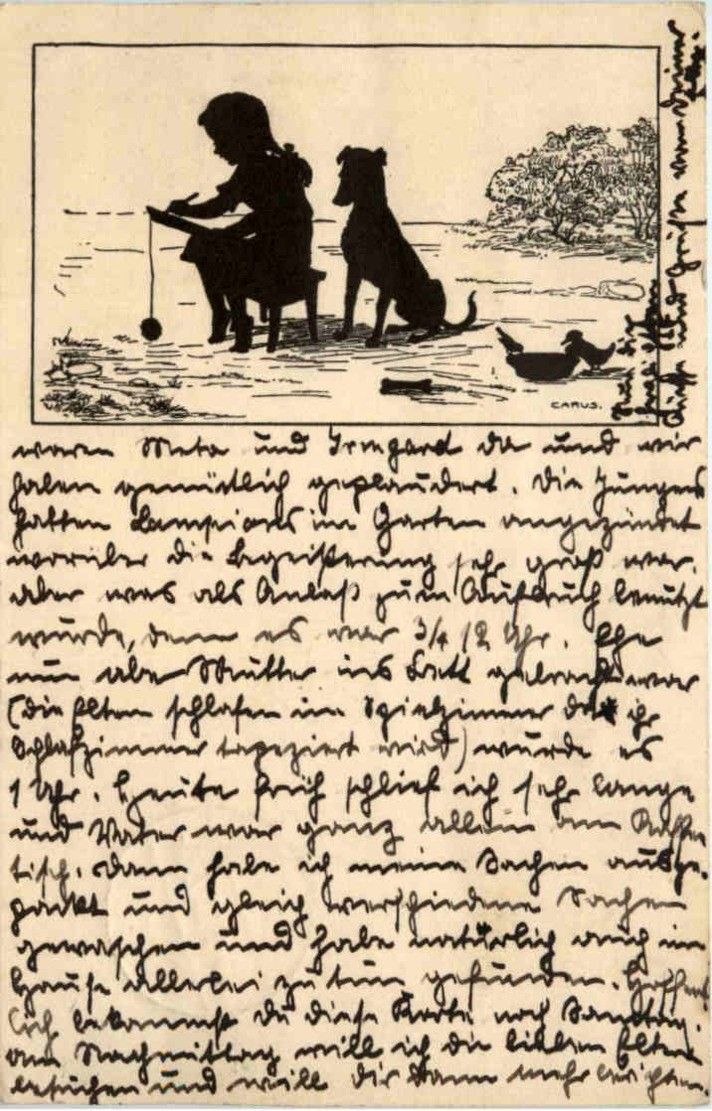 CARUS.
waren Meta und Irmgard da und wir
haben gemütlich geplaudert. Die Jungens
hatten Lampions im Garten angezündet
worüber die Begeisterung sehr groß war,
aber was als Anlaß zum Aufbruch benutzt
wurde, denn es war 3/4 12 Uhr. Ehe
nun aber Mutter ins Bett gebracht war
(die Eltern schlafen im Spielzimmer da ihr
Schlafzimmer tapeziert wird) wurde es
1 Uhr. Heute früh schlief ich sehr lange
und Vater war ganz allein am Kaffee
tisch. Dann habe ich meine Sachen ausge-
packt und gleich verschiedene Sachen
gewaschen und habe natürlich auch im
Hause allerlei zu tun gefunden. Hoffent-
lich bekommst Du diese Karte noch Sonntag.
am Nachmittag will ich die lieben Eltern
besuchen und will Dir dann mehr berichten.
und Grüße von Deiner